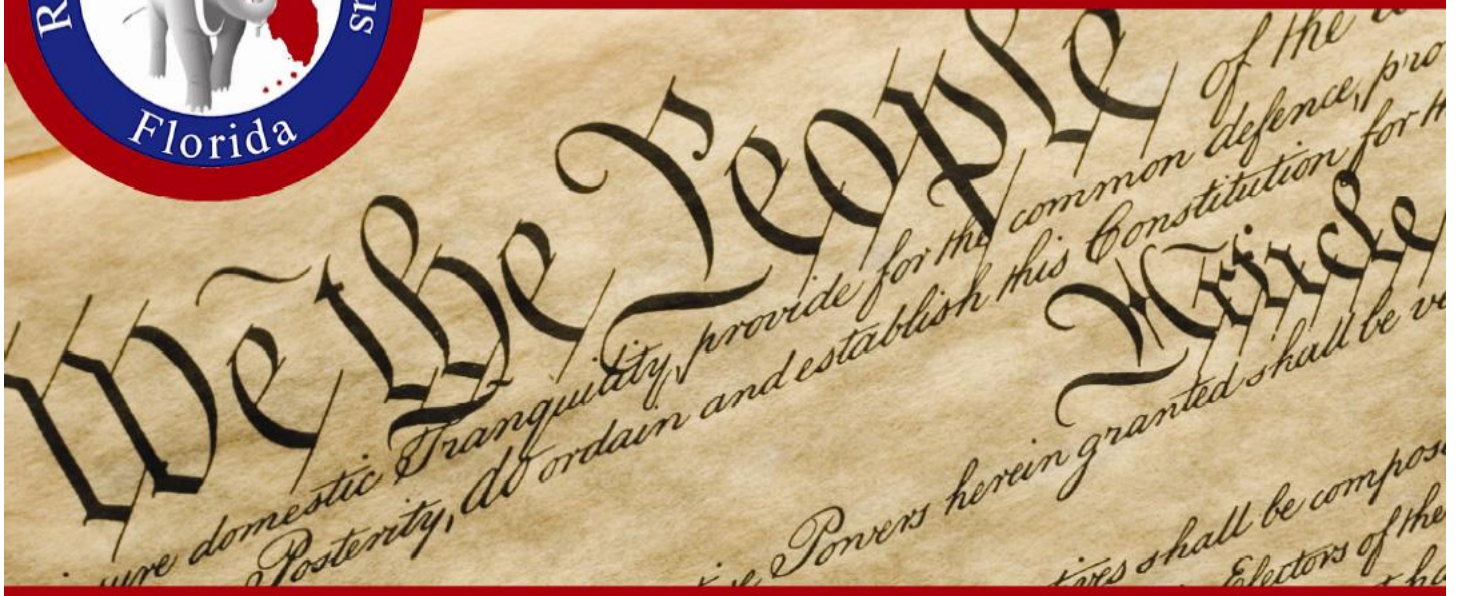 R
us
Florida
We the People
of the
domestic Tranquility, provide for the common defence, pro
Posterity, do ordain and establish this Constitution for
Article
Powers herein granted shall be
shall be compos
Electors of the